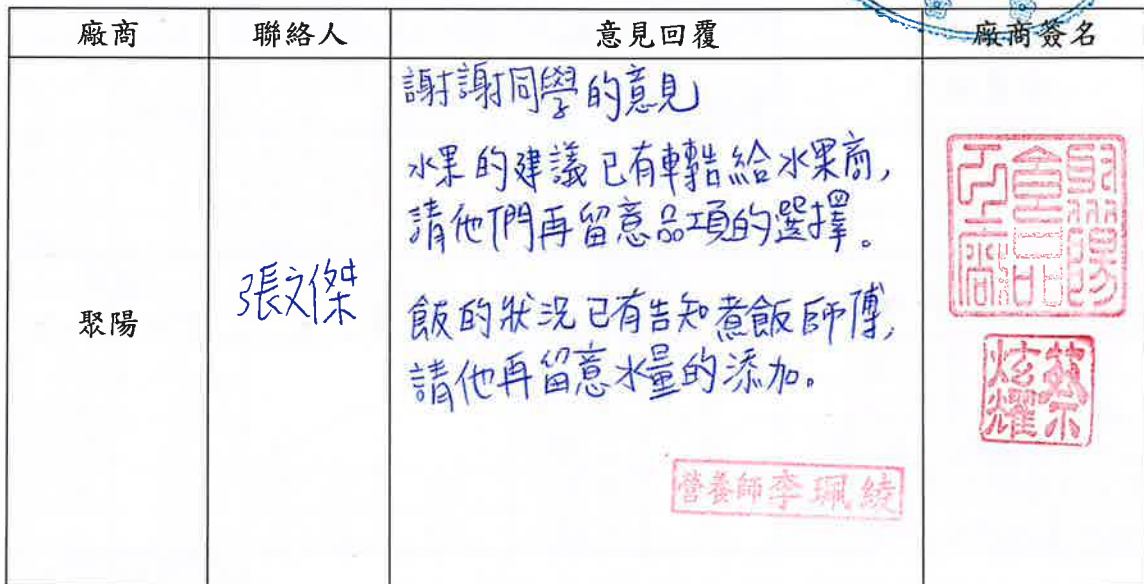 廠商 聯絡人 意見回覆 廠商簽名
聚陽 張文傑
謝謝同學的意見
水果的建議已有轉告給水果商,
請他們再留意品項的選擇。
飯的狀況已有告知煮飯師傅,
請他再留意水量的添加。
營養師李珮綾
聚陽
食品
工廠
蔡
炫耀